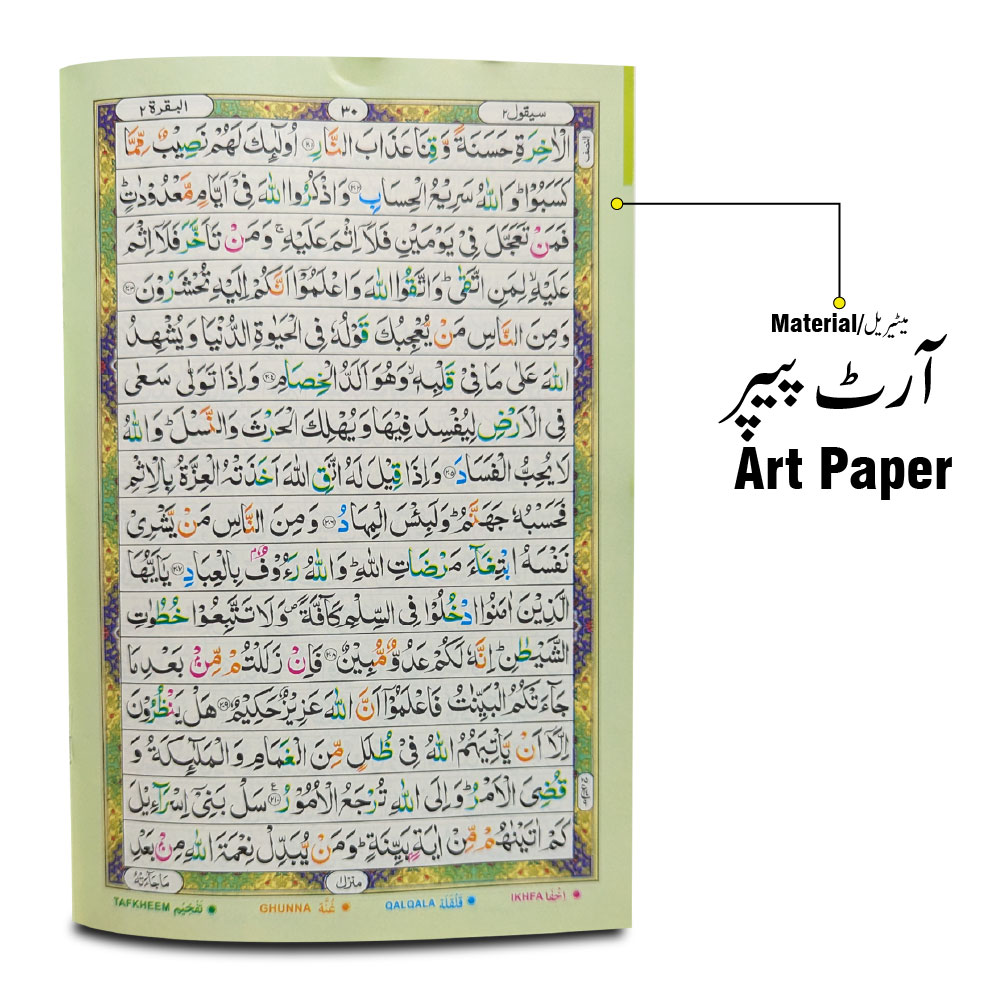 سیقول ۲ ۳۰ البقرة ۲
الْاٰخِرَةِ حَسَنَةً وَّقِنَا عَذَابَ النَّارِ ۝۲۰۱ اُولٰٓئِكَ لَهُمْ نَصِيْبٌ مِّمَّا
كَسَبُوْا ؕ وَاللّٰهُ سَرِيْعُ الْحِسَابِ ۝۲۰۲ وَاذْكُرُوا اللّٰهَ فِيْٓ اَيَّامٍ مَّعْدُوْدٰتٍ ؕ
فَمَنْ تَعَجَّلَ فِيْ يَوْمَيْنِ فَلَاۤ اِثْمَ عَلَيْهِ ۚ وَمَنْ تَاَخَّرَ فَلَاۤ اِثْمَ
عَلَيْهِ ۙ لِمَنِ اتَّقٰى ؕ وَاتَّقُوا اللّٰهَ وَاعْلَمُوْۤا اَنَّكُمْ اِلَيْهِ تُحْشَرُوْنَ ۝۲۰۳
وَمِنَ النَّاسِ مَنْ يُّعْجِبُكَ قَوْلُهٗ فِي الْحَيٰوةِ الدُّنْيَا وَيُشْهِدُ
اللّٰهَ عَلٰى مَا فِيْ قَلْبِهٖ ۙ وَهُوَ اَلَدُّ الْخِصَامِ ۝۲۰۴ وَاِذَا تَوَلّٰى سَعٰى
فِي الْاَرْضِ لِيُفْسِدَ فِيْهَا وَيُهْلِكَ الْحَرْثَ وَالنَّسْلَ ؕ وَاللّٰهُ
لَا يُحِبُّ الْفَسَادَ ۝۲۰۵ وَاِذَا قِيْلَ لَهُ اتَّقِ اللّٰهَ اَخَذَتْهُ الْعِزَّةُ بِالْاِثْمِ
فَحَسْبُهٗ جَهَنَّمُ ؕ وَلَبِئْسَ الْمِهَادُ ۝۲۰۶ وَمِنَ النَّاسِ مَنْ يَّشْرِيْ
نَفْسَهُ ابْتِغَآءَ مَرْضَاتِ اللّٰهِ ؕ وَاللّٰهُ رَءُوْفٌۢ بِالْعِبَادِ ۝۲۰۷ يٰۤاَيُّهَا
الَّذِيْنَ اٰمَنُوا ادْخُلُوْا فِي السِّلْمِ كَآفَّةً ۪ وَلَا تَتَّبِعُوْا خُطُوٰتِ
الشَّيْطٰنِ ؕ اِنَّهٗ لَكُمْ عَدُوٌّ مُّبِيْنٌ ۝۲۰۸ فَاِنْ زَلَلْتُمْ مِّنْۢ بَعْدِ مَا
جَآءَتْكُمُ الْبَيِّنٰتُ فَاعْلَمُوْۤا اَنَّ اللّٰهَ عَزِيْزٌ حَكِيْمٌ ۝۲۰۹ هَلْ يَنْظُرُوْنَ
اِلَّاۤ اَنْ يَّاْتِيَهُمُ اللّٰهُ فِيْ ظُلَلٍ مِّنَ الْغَمَامِ وَالْمَلٰٓئِكَةُ وَ
قُضِيَ الْاَمْرُ ؕ وَاِلَى اللّٰهِ تُرْجَعُ الْاُمُوْرُ ۝۲۱۰ سَلْ بَنِيْۤ اِسْرَآءِيْلَ
كَمْ اٰتَيْنٰهُمْ مِّنْ اٰيَةٍۭ بَيِّنَةٍ ؕ وَمَنْ يُّبَدِّلْ نِعْمَةَ اللّٰهِ مِنْۢ بَعْدِ
منزل ۱ مَا جَآءَتْهُ
IKHFA اخفا QALQALA قلقله GHUNNA غنّه TAFKHEEM تفخیم
Material/میٹیریل
آرٹ پیپر
Art Paper